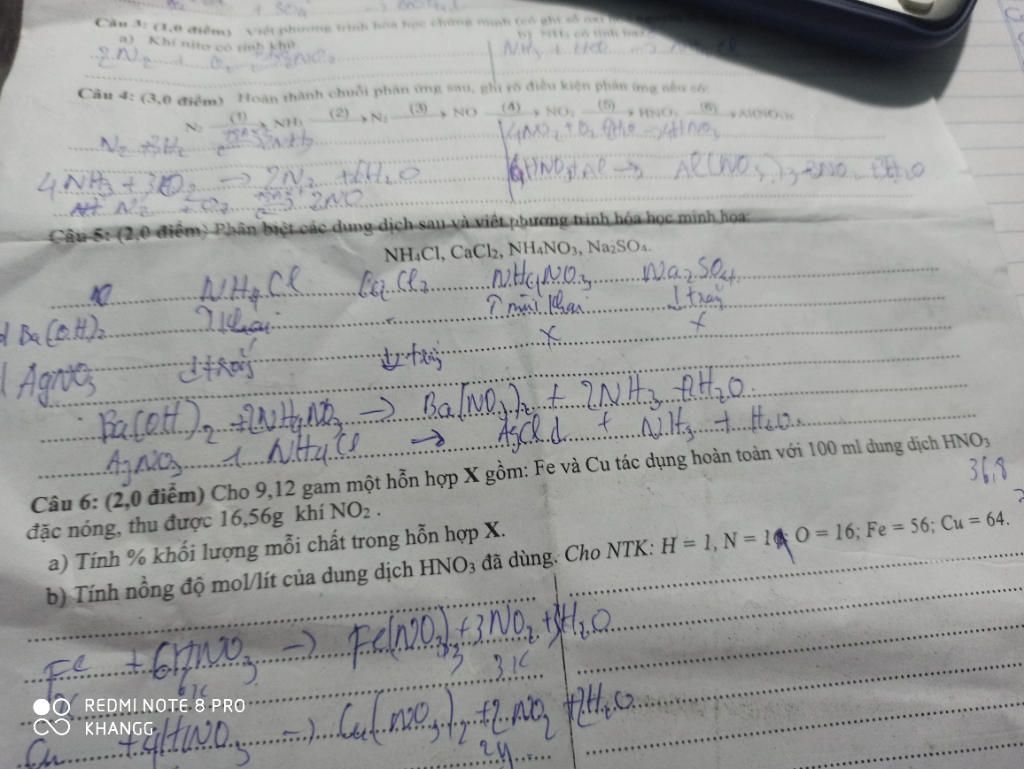 Câu 3: (3,0 điểm) Viết phương trình hóa học chứng minh (có ghi số oxi
a) Khí nitơ có tính khử
b) NH₃ có tính bazơ
2N₂ + O₂
NH₃ + HCl → NH₄Cl
Câu 4: (3,0 điểm) Hoàn thành chuỗi phản ứng sau, ghi rõ điều kiện phản ứng nếu có:
N₂ (1)→ NH₃ (2)→ N₂ (3)→ NO (4)→ NO₂ (5)→ HNO₃ (6)→ Al(NO₃)₃
N₂ + 3H₂ 2NH₃
4NO₂ + O₂ 2H₂O → 4HNO₃
4NH₃ + 3O₂ → 2N₂ + 6H₂O
4HNO₃ + Al → Al(NO₃)₃ + NO + 2H₂O
N₂ + O₂ 2NO
Câu 5: (2,0 điểm) Phân biệt các dung dịch sau và viết phương trình hóa học minh họa:
NH₄Cl, CaCl₂, NH₄NO₃, Na₂SO₄.
NH₄Cl CaCl₂ NH₄NO₃ Na₂SO₄
Ba(OH)₂ ↑ khai - ↑ mùi khai ↓ trắng
AgNO₃ ↓ trắng ↓ trắng x x
Ba(OH)₂ + 2NH₄NO₃ → Ba(NO₃)₂ + 2NH₃ + 2H₂O
AgNO₃ + NH₄Cl → AgCl ↓ + NH₃ + H₂O
Câu 6: (2,0 điểm) Cho 9,12 gam một hỗn hợp X gồm: Fe và Cu tác dụng hoàn toàn với 100 ml dung dịch HNO₃
đặc nóng, thu được 16,56g khí NO₂ .
36,8
a) Tính % khối lượng mỗi chất trong hỗn hợp X.
b) Tính nồng độ mol/lít của dung dịch HNO₃ đã dùng. Cho NTK: H = 1, N = 14; O = 16; Fe = 56; Cu = 64.
Fe + 6HNO₃ → Fe(NO₃)₃ + 3NO₂ + 3H₂O
6x 3x
Cu + 4HNO₃ → Cu(NO₃)₂ + 2NO₂ + 2H₂O
2y
REDMI NOTE 8 PRO
KHANGG